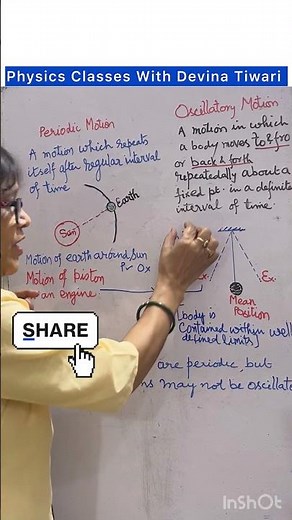 Physics Classes With Devina Tiwari
Periodic Motion
A motion which repeats
itself after regular interval
of time
Earth
Sun
Motion of earth around sun
P✓ O×
Motion of piston
an engine
Oscillatory Motion
A motion in which
a body moves to & fro
or back & forth
repeatedally about a
fixed pt. in a definite
interval of time.
Ex.
Ex.
Mean
Position
[body is
contained within well
defined limits]
SHARE
are periodic, but
may not be oscillato
InShOt